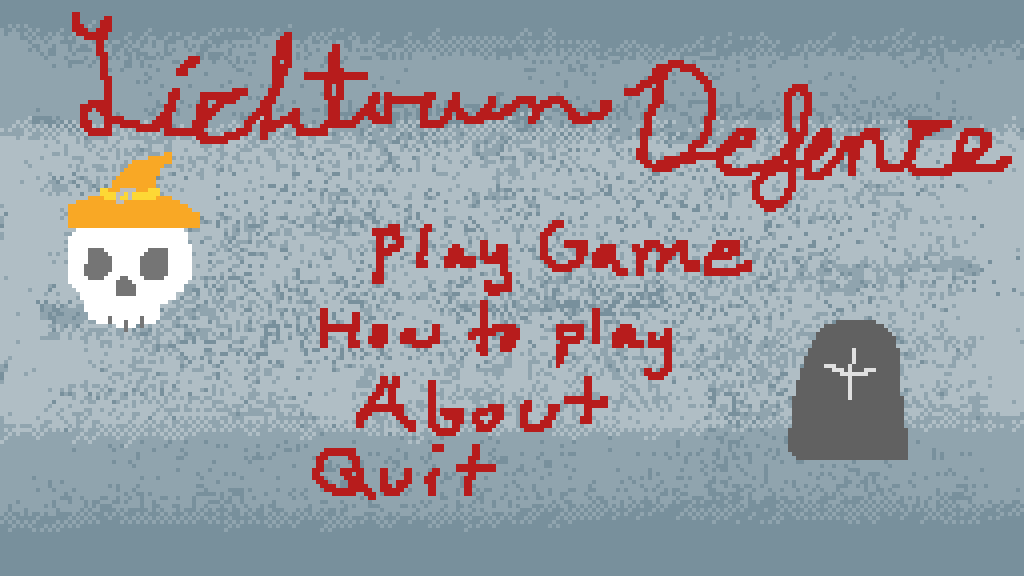 Lichtown Defence
Play Game
How to play
About
Quit